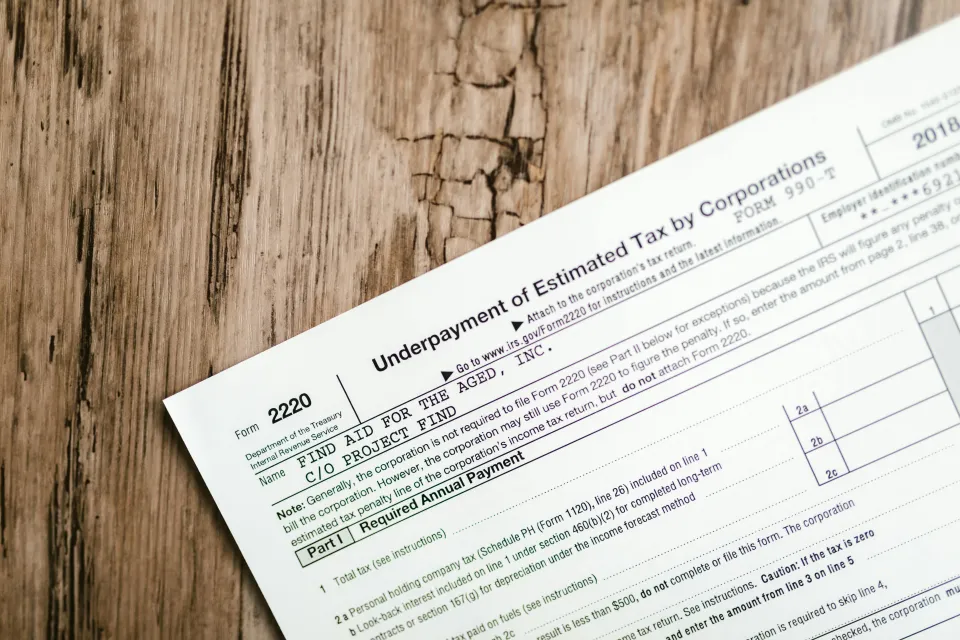 Form 2220
Department of the Treasury
Internal Revenue Service
Underpayment of Estimated Tax by Corporations
▶ Attach to the corporation's tax return.
FORM 990-T
▶ Go to www.irs.gov/Form2220 for instructions and the latest information.
OMB No.
2018
Name
FIND AID FOR THE AGED, INC.
C/O PROJECT FIND
Employer identification
**-***6921
Note: Generally, the corporation is not required to file Form 2220 (see Part II below for exceptions) because the IRS will figure any penalty
bill the corporation. However, the corporation may still use Form 2220 to figure the penalty. If so, enter the amount from page 2, line 38,
estimated tax penalty line of the corporation's income tax return, but do not attach Form 2220.
Part I Required Annual Payment
1 Total tax (see instructions)
1
2 a Personal holding company tax (Schedule PH (Form 1120), line 26) included on line 1
2a
b Look-back interest included on line 1 under section 460(b)(2) for completed long-term
contracts or section 167(g) for depreciation under the income forecast method
2b
tax paid on fuels (see instructions)
2c
2c
result is less than $500, do not complete or file this form. The corporation
income tax return. See instructions. Caution: If the tax is zero
and enter the amount from line 3 on line 5
corporation is required to skip line 4,
checked, the corporation